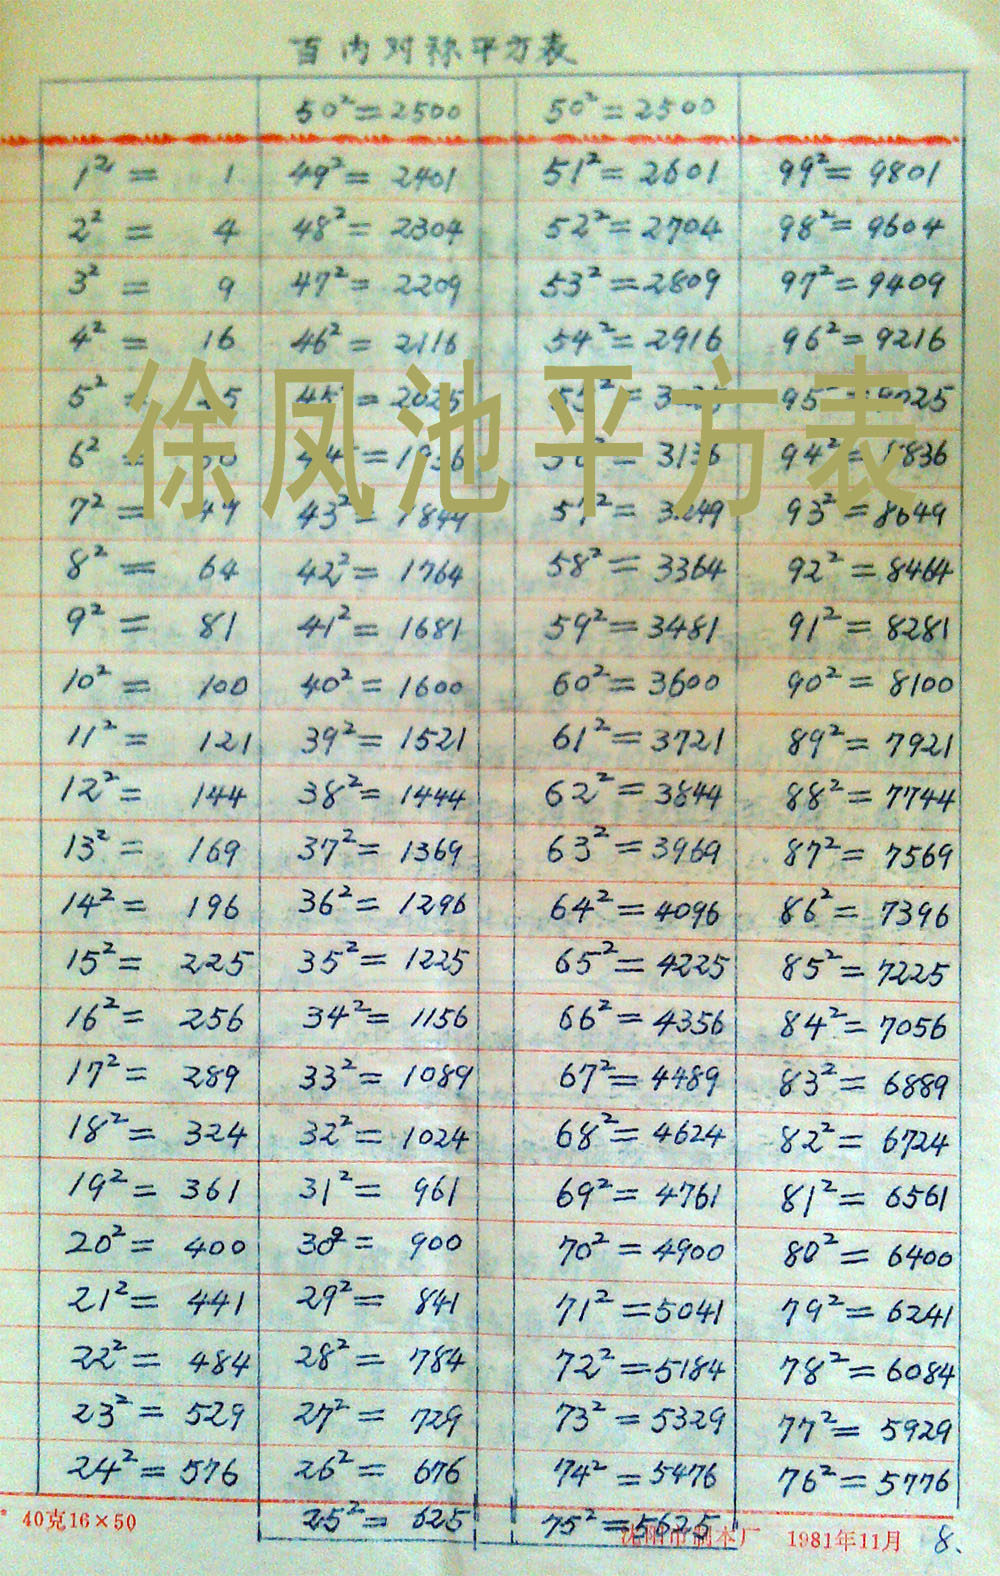 百内对称平方表
50²=2500 50²=2500
1²= 1 49²=2401 51²=2601 99²=9801
2²= 4 48²=2304 52²=2704 98²=9604
3²= 9 47²=2209 53²=2809 97²=9409
4²= 16 46²=2116 54²=2916 96²=9216
5²= 45²=2025 95
徐凤池平方表
6² =1936 =3136 94²= 836
7²= 43²= 57²= 3249 93²=8649
8²= 64 42²=1764 58²=3364 92²=8464
9²= 81 41²=1681 59²=3481 91²=8281
10²= 100 40²=1600 60²=3600 90²=8100
11²= 121 39²=1521 61²=3721 89²=7921
12²= 144 38²=1444 62²=3844 88²=7744
13²= 169 37²=1369 63²=3969 87²=7569
14²= 196 36²=1296 64²=4096 86²=7396
15²= 225 35²=1225 65²=4225 85²=7225
16²= 256 34²=1156 66²=4356 84²=7056
17²= 289 33²=1089 67²=4489 83²=6889
18²= 324 32²=1024 68²=4624 82²=6724
19²= 361 31²= 961 69²=4761 81²=6561
20²= 400 30²= 900 70²=4900 80²=6400
21²= 441 29²= 841 71²=5041 79²=6241
22²= 484 28²= 784 72²=5184 78²=6084
23²= 529 27²= 729 73²=5329 77²=5929
24²= 576 26²= 676 74²=5476 76²=5776
25²= 625 75²=5625
40克16×50 沈阳市制本厂 1981年11月 8.